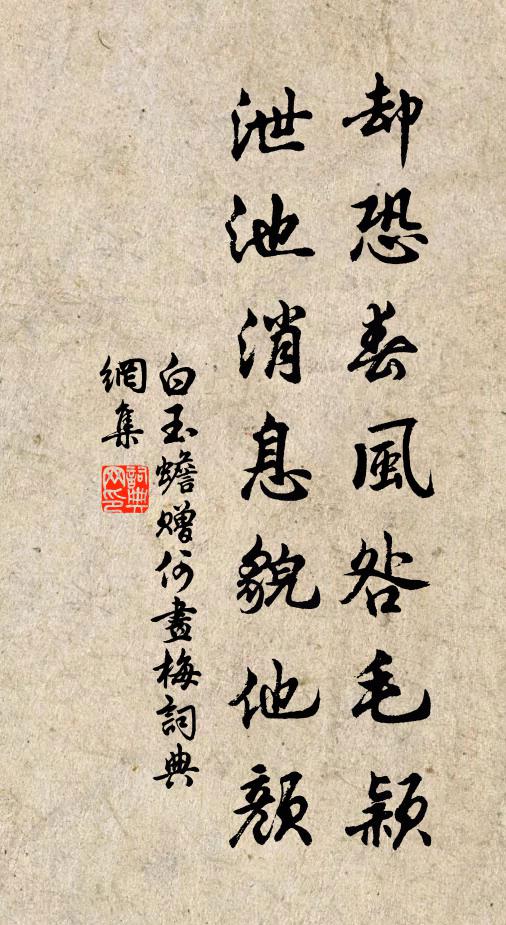 却恐春風咎毛穎
泄池消息貌他顏
白玉蟾贈何畫梅詞典
網集
詞典
网印